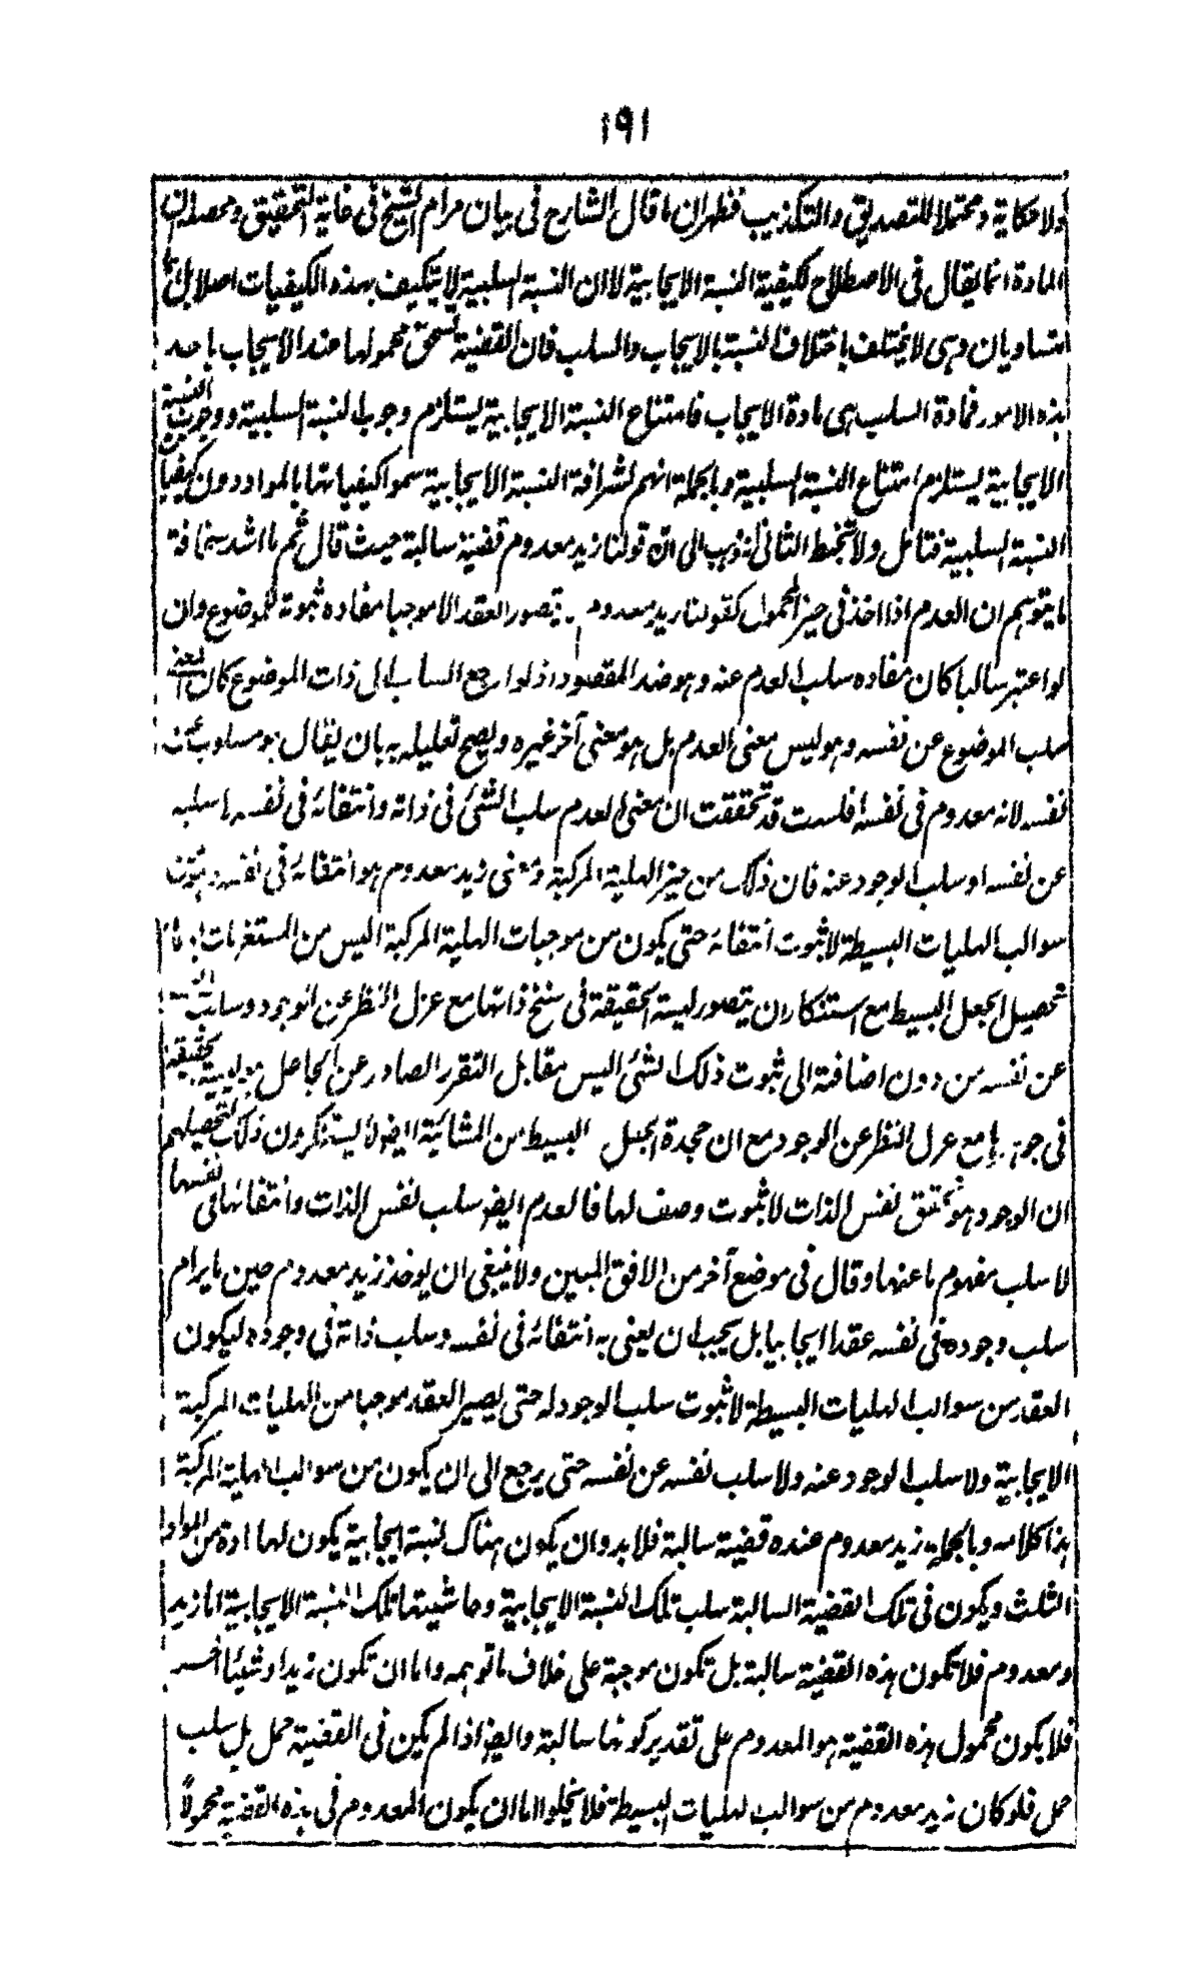 ١٩١
ولا حكاية ومحتملا للتصديق والتكذيب فظهر ان ما قال الشارح فى بيان مرام الشيخ فى غاية التحقيق ومحصله ان
المادة انما يقال فى الاصطلاح لكيفية النسبة الايجابية لا ان النسبة السلبية لا يتكيف بهذه الكيفيات اصلا بل
متساويان وهى لا يختلف باختلاف النسبة بالايجاب والسلب فان القضية تستحق محمولها عند الايجاب باحد
هذه الامور فمادة السلب هى مادة الايجاب فامتناع النسبة الايجابية يستلزم وجوب النسبة السلبية ووجوب النسبة
الايجابية يستلزم امتناع النسبة السلبية وبالجملة انهم لشرافة النسبة الايجابية سموا كيفياتها بالمواد دون كيفيات
النسبة السلبية فتامل ولا تخبط الثانى انه ذهب الى ان قولنا زيد معدوم قضية سالبة حيث قال ثم ما اشد سخافة
ما يتوهم ان العدم اذا اخذ فى حيز المحمول كقولنا زيد معدوم يتصور العقد الا موجبا مفاده ثبوته للموضوع وان
لو اعتبر سالبا كان مفاده سلب العدم عنه وهو ضد المقصود اذ لو ارجع السلب الى ذات الموضوع كان المعنى
سلب الموضوع عن نفسه وهو ليس معنى العدم بل هو معنى آخر غيره ويصح تعليله به بان يقال هو مسلوب عن
نفسه لانه معدوم فى نفسه افلست قد تحققت ان معنى العدم سلب الشئ فى ذاته وانتفائه فى نفسه لا سلبه
عن نفسه او سلب الوجود عنه فان ذلك من حيز الهلية المركبة ومعنى زيد معدوم هو انتفائه فى نفسه وهو من
سوالب الهليات البسيطة لا ثبوت انتفائه حتى يكون من موجبات الهلية المركبة اليس من المستغربات
تحصيل الجعل البسيط مع استنكار ان يتصور ليسية الحقيقة فى سنخ ذاتها مع عزل النظر عن الوجود وسلب الشئ
عن نفسه من دون اضافته الى ثبوت ذلك الشئ اليس مقابل التقرر الصادر عن الجاعل هو ليسية الحقيقة
فى جوهرها مع عزل النظر عن الوجود مع ان محجدة الجعل البسيط من المشائية ايضا لا يستنكرون ذلك لتحصيلهم
ان الوجود هو تحقق نفس الذات لا ثبوت وصف لها فالعدم ايضا سلب نفس الذات وانتفائها فى نفسها
لا سلب مفهوم ما عنها وقال فى موضع آخر من الافق المبين ولا ينبغى ان يوخذ زيد معدوم حين ما يرام
سلب وجوده فى نفسه عقدا ايجابيا بل يجب ان يعنى به انتفائه فى نفسه وسلب ذاته فى وجوده ليكون
العقد من سوالب الهليات البسيطة لا ثبوت سلب الوجود له حتى يصير العقد موجبا من الهليات المركبة
الايجابية ولا سلب الوجود عنه ولا سلب نفسه عن نفسه حتى يرجع الى ان يكون من سوالب الهلية المركبة
هذا كلامه وبالجملة زيد معدوم عنده قضية سالبة فلا بد وان يكون هناك نسبة ايجابية يكون لها مادة من المواد
الثلث ويكون فى تلك القضية السالبة سلب تلك النسبة الايجابية وحاشيتا تلك النسبة الايجابية اما زيد
ومعدوم فلا تكون هذه القضية سالبة بل تكون موجبة على خلاف ما توهمه واما ان تكون زيدا وشيئا آخر
فلا يكون محمول هذه القضية هو المعدوم على تقدير كونها سالبة وايضا اذا لم يكن فى القضية حمل بل سلب
حمل فلو كان زيد معدوم من سوالب الهليات البسيطة فلا يخلوا اما ان يكون المعدوم فى هذه القضية محمولا